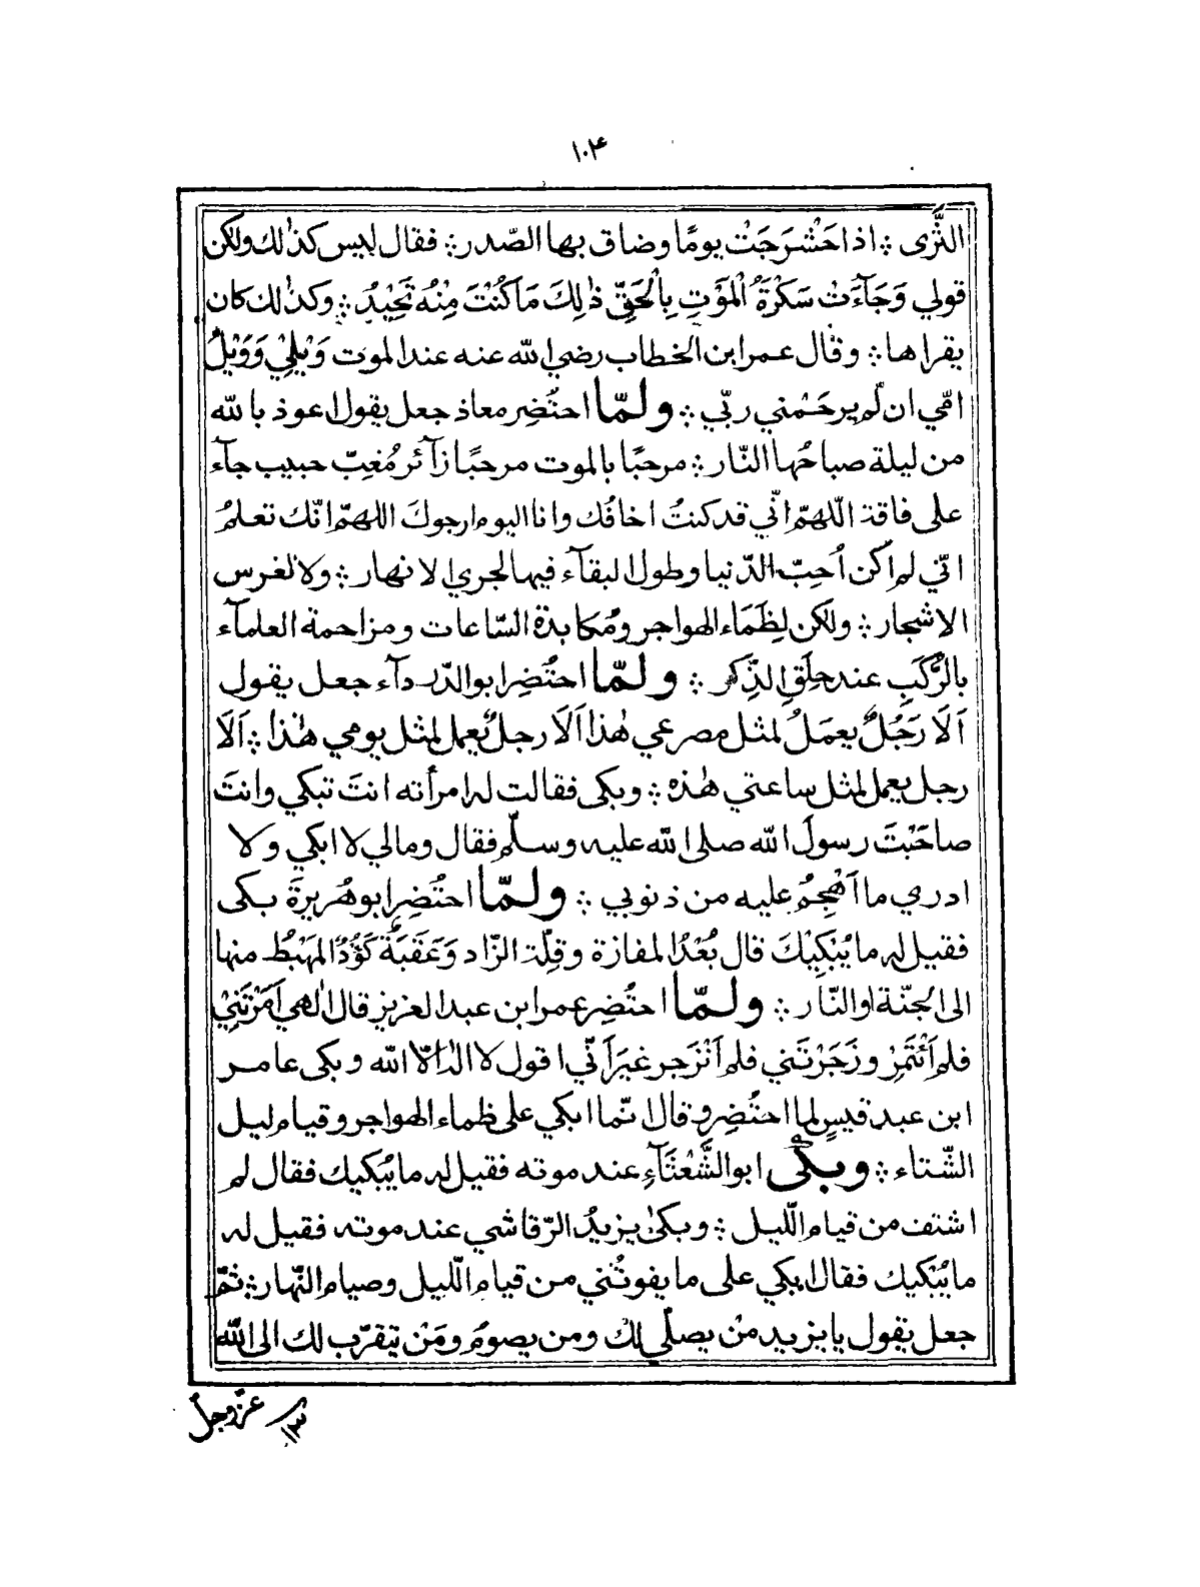 ١٠٤
الثَّرى ؞ اذا حَشْرَجَتْ يومًا وضاق بها الصّدر ؞ فقال ليس كذلك ولكن
قولي وَجَآءَتْ سَكْرَةُ الْمَوْتِ بِالْحَقِّ ذٰلِكَ مَا كُنْتَ مِنْهُ تَحِيْدُ ؞ وكذلك كان
يقراها ؞ وقال عمر ابن الخطاب رضي الله عنه عند الموت وَيْلِيْ وَوَيْلُ
امّي ان لم يرحَمْني ربّي ؞ ولمّا احتُضِر معاذ جعل يقول اعوذ بالله
من ليلة صباحُها النّار ؞ مرحبًا بالموت مرحبًا زآئر مُغِبّ حبيب جآء
على فاقة اللّهمّ انّي قد كنتُ اخافُك وانا اليوم ارجوكَ اللهمّ انّك تعلمُ
انّي لم اكن اُحِبّ الدّنيا وطول البقآء فيها لجري الانهار ؞ ولا لغرس
الاشجار ؞ ولكن لِظَمَاء الهواجر ومُكابدة السّاعات ومزاحمة العلمآء
بالرُّكَبِ عند حِلَقِ الذِّكر ؞ ولمّا احتُضِر ابو الدّردآء جعل يقول
اَلَا رَجُلٌ يعمَلُ لمثل مصرعي هٰذا اَلَا رجلٌ يعمل لمثل يومي هٰذا ؞ اَلَا
رجل يعمل لمثل ساعتي هٰذه ؞ وبكى فقالت له امرأته انتَ تبكي وانتَ
صاحَبْتَ رسولَ الله صلى الله عليه وسلّم فقال ومالي لا ابكي ولا
ادري ما اَهْجِمُ عليه من ذنوبي ؞ ولمّا احتُضِر ابو هُريرةَ بكى
فقيل له ما يُبْكِيْكَ قال بُعْدُ المفازة وقِلّة الزّاد وَعَقَبَةٌ كَؤُدٌ المَهْبِطُ منها
الى الجنّة او النّار ؞ ولمّا احتُضِر عمر ابن عبد العزيز قال الٰهي اَمَرْتَنِيْ
فلم اَئْتَمِرْ وزَجَرْتَني فلم اَنْزَجِر غيرَ اَنّي اقول لا الٰه الّا الله وبكى عامر
ابن عبد قيسٍ لما احتُضِر وقال انّما ابكي على ظماء الهواجر وقيام ليل
الشّتاء ؞ وبكى ابو الشَّعْثَآءِ عند موته فقيل له ما يُبْكيك فقال لم
اشتف من قيام اللّيل ؞ وبكىٰ يزيدُ الرّقاشي عند موته فقيل له
ما يُبْكيك فقال ابكي على ما يفوتُني من قيام اللّيل وصيام النّهار ؞ ثمّ
جعل يقول يا يزيد مَنْ يصلّي لك ومن يصومُ ومَنْ يتقرّب لك الى الله
عزّ وجلّ